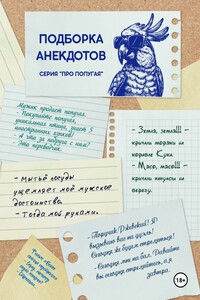 ПОДБОРКА
АНЕКДОТОВ
СЕРИЯ "ПРО ПОПУГАЯ"
Мужик продает попугая.
- Покупайте попугая,
уникальная птица, знает 5
иностранных языков!
- А что за подруга с ним?
- Это переводчик.
- Земля, земля!!! -
кричали моряки на
корабле Кука.
- Мясо, мясо!!! -
кричали папуасы на
берегу.
- Мытьё посуды
ущемляет моё мужское
достоинство.
- Тогда мой руками.
- Поручик Ржевский! Я
вызываю вас на дуэль!
Сегодня же будем стреляться!
- Сегодня мне на бал. Давайте
вы сегодня стреляйтесь, а я
завтра.
18+